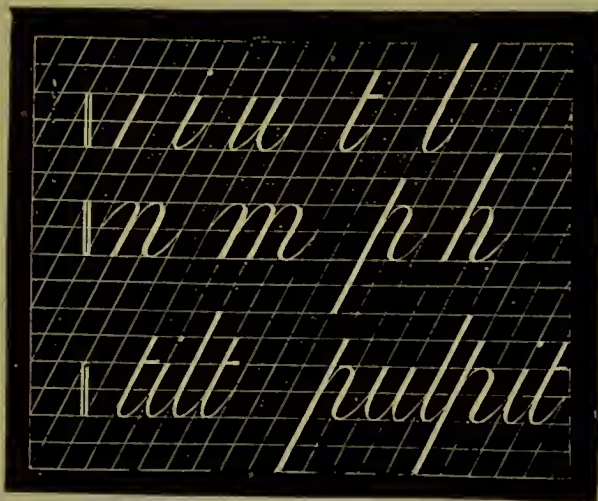 i u t l
n m p h
tilt pulpit